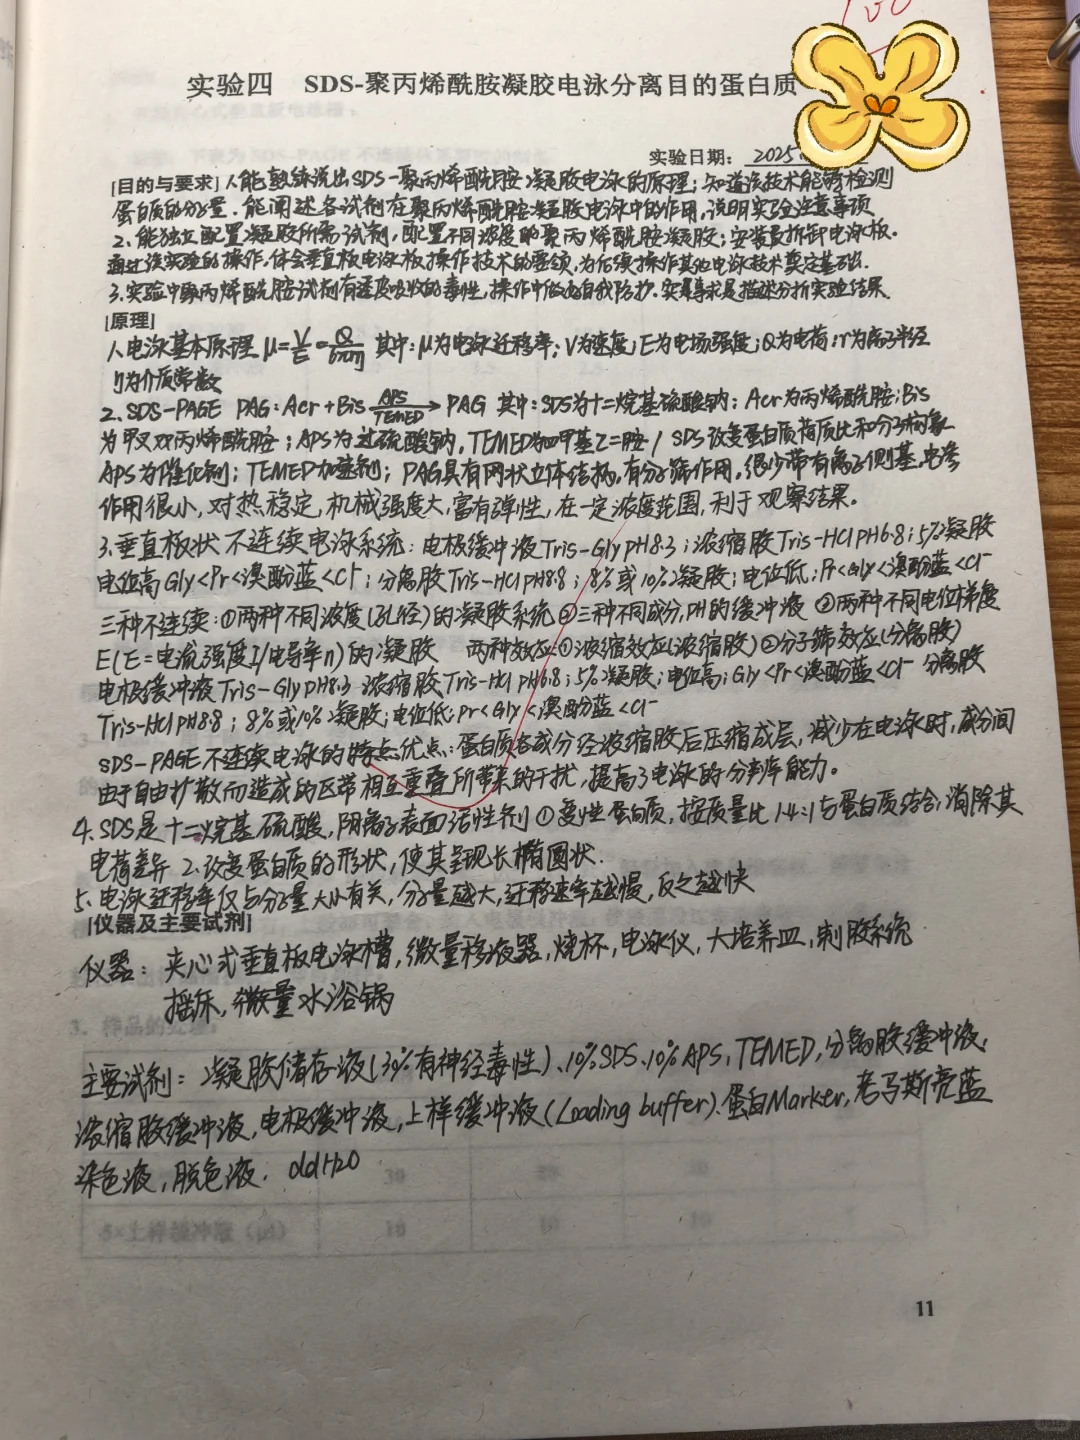 100
实验四 SDS-聚丙烯酰胺凝胶电泳分离目的蛋白质
实验日期: 2025
[目的与要求] 1.能熟练说出SDS-聚丙烯酰胺凝胶电泳的原理;知道该技术能够检测
蛋白质的分子量.能阐述各试剂在聚丙烯酰胺凝胶电泳中的作用,说明实验注意事项
2、能独立配置凝胶所需试剂,配置不同浓度的聚丙烯酰胺凝胶;安装及拆卸电泳板.
通过该实验的操作,体会垂直板电泳板操作技术的要领,为后续操作其他电泳技术奠定基础.
3.实验中聚丙烯酰胺试剂有速及吸收的毒性,操作中做好自我防护.实事求是描述分析实验结果.
[原理]
1、电泳基本原理 μ=V/E=Q/6πrη 其中:μ为电泳迁移率;V为速度;E为电场强度;Q为电荷;r为离子半径
η为介质常数
2、SDS-PAGE PAG:Acr+Bis APS TEMED→PAG 其中:SDS为十二烷基硫酸钠;Acr为丙烯酰胺;Bis
为甲叉双丙烯酰胺;APS为过硫酸钠,TEMED为四甲基乙=胺/ SDS改变蛋白质荷质比和分子构象
APS为催化剂;TEMED加速剂;PAG具有网状立体结构,有分子筛作用,很少带有离子侧基,电渗
作用很小,对热稳定,机械强度大,富有弹性,在一定浓度范围,利于观察结果。
3、垂直板状不连续电泳系统:电极缓冲液Tris-Gly pH8.3;浓缩胶Tris-HCl pH6.8;5%凝胶
电位高Gly<Pr<溴酚蓝<Cl⁻;分离胶Tris-HCl pH8.8;8%或10%凝胶;电位低;Pr<Gly<溴酚蓝<Cl⁻
三种不连续:①两种不同浓度(孔径)的凝胶系统②三种不同成分,PH的缓冲液 ③两种不同电位梯度
E(E=电流强度I/电导率n)的凝胶 两种效应:①浓缩效应(浓缩胶)②分子筛效应(分离胶)
电极缓冲液Tris-Gly pH8.3 浓缩胶Tris-HCl pH6.8;5%凝胶;电位高;Gly<Pr<溴酚蓝<Cl⁻ 分离胶
Tris-HCl pH8.8;8%或10%凝胶;电位低:Pr<Gly<溴酚蓝<Cl⁻
SDS-PAGE不连续电泳的特点优点:蛋白质各成分经浓缩胶后压缩成层,减少在电泳时,成分间
由于自由扩散而造成的区带相互重叠所带来的干扰,提高了电泳的分辨率能力。
4、SDS是十二烷基硫酸,阴离子表面活性剂①变性蛋白质,按质量比1.4:1与蛋白质结合,消除其
电荷差异 2.改变蛋白质的形状,使其呈现长椭圆状.
5、电泳迁移率仅与分子量大小有关,分子量越大,迁移速率越慢,反之越快
[仪器及主要试剂]
仪器:夹心式垂直板电泳槽,微量移液器,烧杯,电泳仪,大培养皿,制胶系统
摇床,微量水浴锅
主要试剂:凝胶储存液(30%有神经毒性)、10%SDS、10%APS,TEMED,分离胶缓冲液、
浓缩胶缓冲液,电极缓冲液,上样缓冲液(Loading buffer)、蛋白Marker,考马斯亮蓝
染色液,脱色液. ddH2O
11